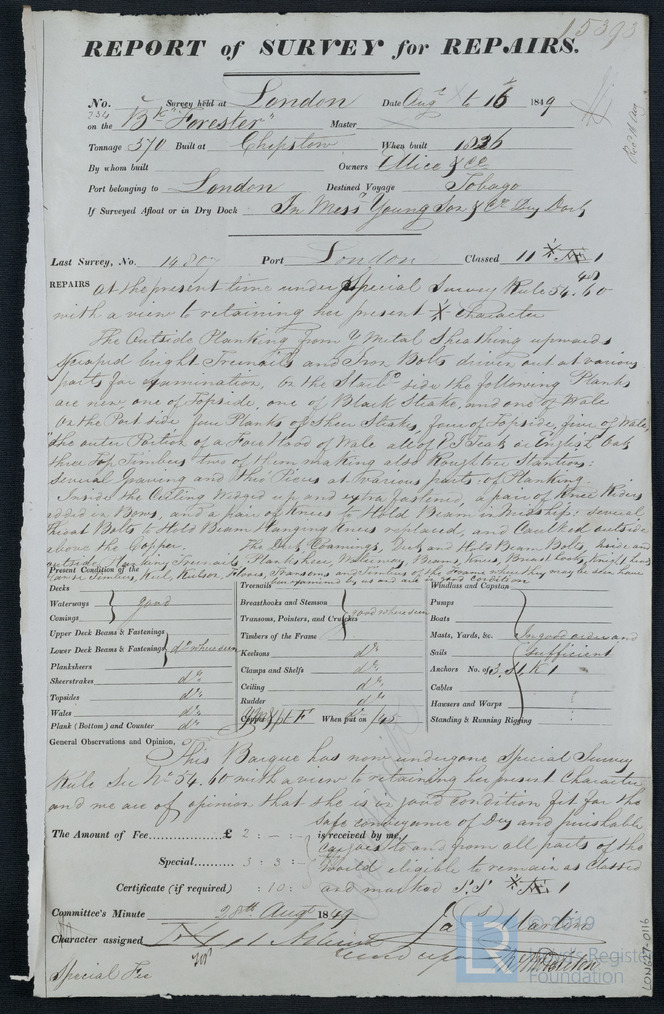 15393
REPORT of SURVEY for REPAIRS.
No. 234 Survey held at London Date Augt to 16 1849
on the Bk "Forester" Master
Tonnage 370 Built at Chepstow When built 1826
By whom built Owners Ellice & Co
Port belonging to London Destined Voyage Tobago
If Surveyed Afloat or in Dry Dock In Messrs Young Son & Co Dry Dock
Last Survey, No. 14807 Port London Classed 11 1
REPAIRS at the present time under Special Survey Rule 54.60
with a view to retaining her present character
The Outside Planking from Y Metal Sheathing upwards
scraped bright Treenails and Iron Bolts driven out at various
parts for examination, on the Starbd side the following Planks
are new one of Topside, one of Black Strake, and one of Wale
On the Port side, four Planks of Sheer Strake, four of Topside, five of Wale,
the outer Portion of a Fore Hood of Wale all of Teak or English Oak
three Top Timbers two of them making also Roughtree Stantions:
Several Graving and Pieces at various parts of Planking
Inside the Ceiling wedged up and extra fastened, a pair of Knee Riders
added in Bows, and a pair of Knees to Hold Beam in Midships: several
Throat Bolts to Hold Beam Hanging Knees replaced, and Caulked outside
above the Copper. The Deck, Comings, Deck and Hold Beam Bolts, inside and
outside, Treenails, Planksheer, Beams, Knees, Breast hooks, Knight heads
Hawse Timbers, Keel, Keelson, Floors, Transoms and timbers of the Frame where they may be seen have
been examined by us and are in good condition
Present Condition of the
Decks
Waterways good
Comings
Upper Deck Beams & Fastenings
Lower Deck Beams & Fastenings do where seen
Planksheers
Sheerstrakes do
Topsides do
Wales do
Plank (Bottom) and Counter do
Treenails
Breasthooks and Stemson
Transoms, Pointers, and Crutches good where seen
Timbers of the Frame
Keelsons do
Clamps and Shelfs do
Ceiling do
Rudder do
Copper When put on /45
Windlass and Capstan
Pumps
Boats
Masts, Yards, &c. In good order and
Sails sufficient
Anchors No. of 3. St. K 1
Cables
Hawsers and Warps
Standing & Running Rigging
General Observations and Opinion, This Barque has now undergone Special Survey
Rule Sec No 54.60 with a view to retaining her present Character
and we are of opinion that she is in good condition fit for the
safe conveyance of Dry and perishable
cargoes to and from all parts of the
World eligible to remain as Classed
and marked S.S 1
The Amount of Fee £ 2 : – : – is received by me,
Special 3 : 3 :
Certificate (if required) : 10 :
Committee's Minute 28th Augt 1849
Jas Martin
Character assigned
Special Fee
© 2019
LR
Lloyd's Register
Foundation
LON627-0116